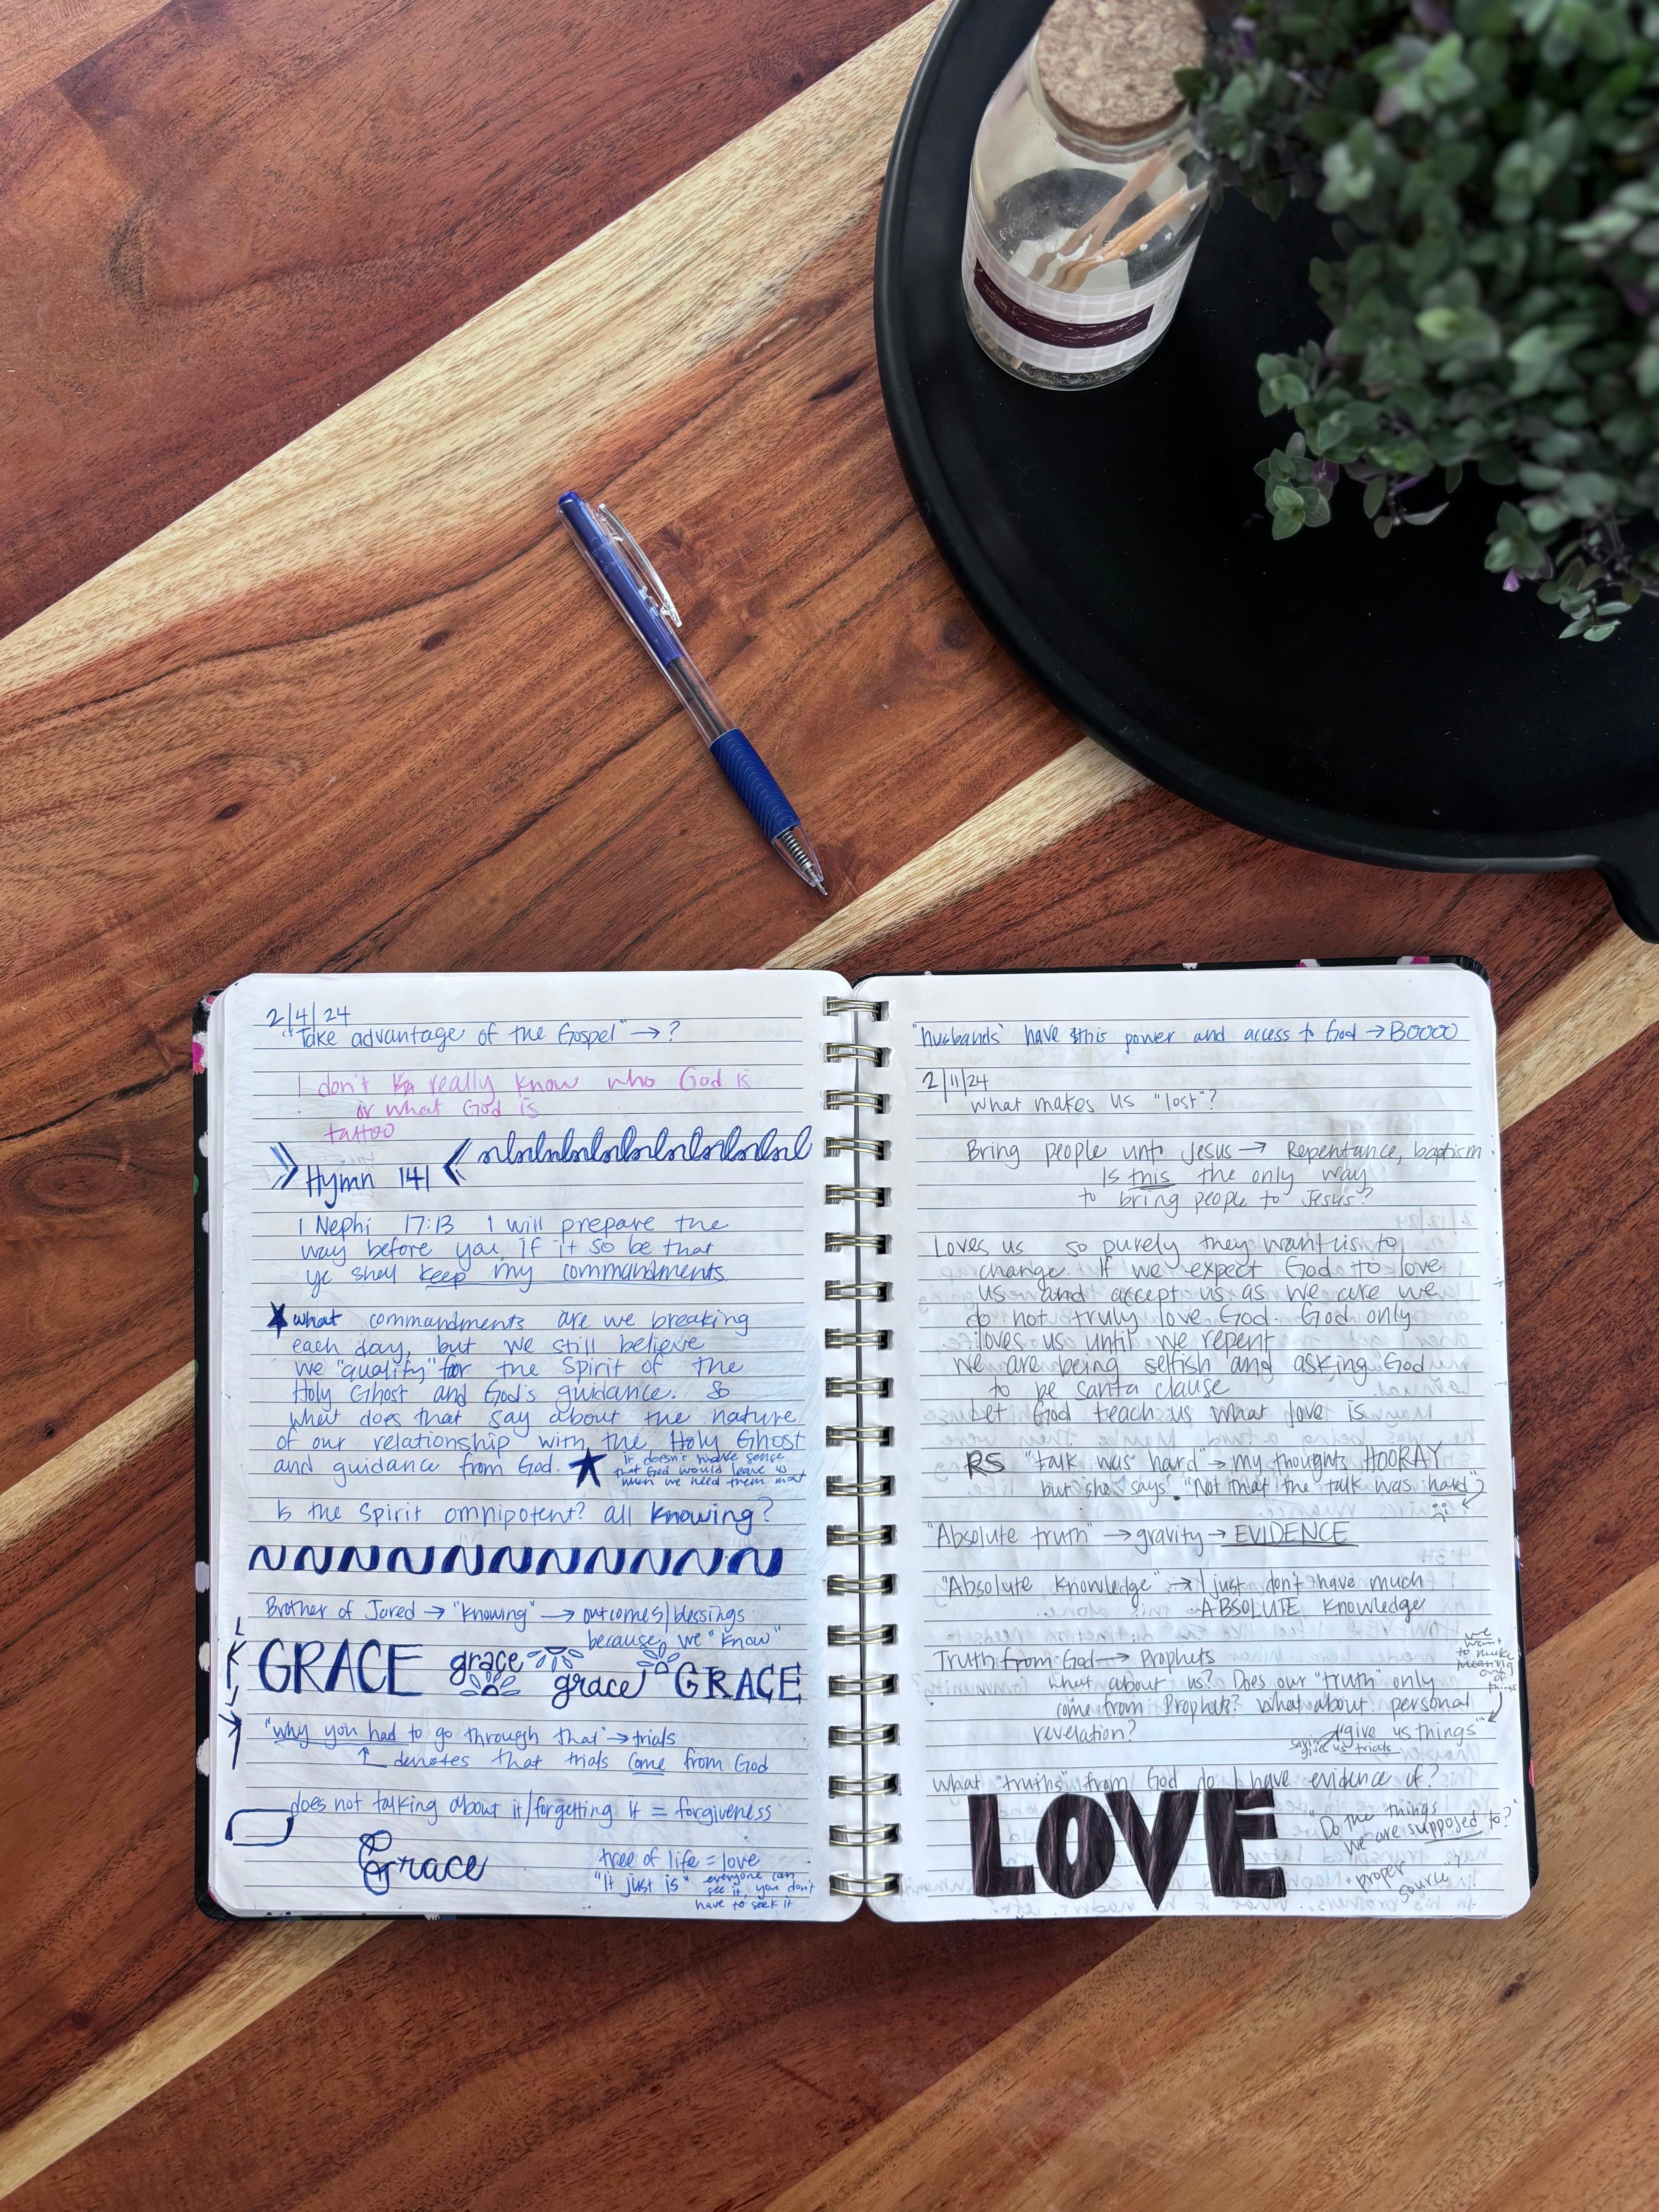 2/4/24
"Take advantage of the Gospel" → ?
I don't kn really know who God is
or what God is
tattoo
Hymn 141
1 Nephi 17:13 I will prepare the
way before you, if it so be that
ye shall keep my commandments.
★ what commandments are we breaking
each day, but we still believe
we "qualify" for the Spirit of the
Holy Ghost and God's guidance. So
what does that say about the nature
of our relationship with the Holy Ghost
and guidance from God. ★
it doesn't make sense
that God would leave us
when we need them most
Is the Spirit omnipotent? all knowing?
Brother of Jared → "knowing" → outcomes/blessings
because we "know"
GRACE grace grace GRACE
"why you had to go through that" → trials
denotes that trials come from God
does not talking about it/forgetting it = forgiveness
Grace
tree of life = love
"It just is" everyone can
see it, you don't
have to seek it
"husbands" have this power and access to God → BOOOO
2/11/24
What makes us "lost"?
Bring people unto Jesus → Repentance, baptism
Is this the only way
to bring people to Jesus?
Loves us so purely they want us to
change. If we expect God to love
us and accept us as we are we
do not truly love God. God only
loves us until we repent
We are being selfish and asking God
to be santa clause
Let God teach us what love is
RS "talk was hard" → my thoughts HOORAY
but she says "Not that the talk was hard"
"Absolute truth" → gravity → EVIDENCE
"Absolute Knowledge" → I just don't have much
ABSOLUTE Knowledge
Truth from God → Prophets
what about us? Does our "truth" only
come from Prophets? What about personal
revelation?
we
want
to make
meaning
out
of
things
"give us things"
saying
gives us trials
What "truths" from God do I have evidence of?
LOVE
"Do the things
we are supposed to?"
"proper
source"?